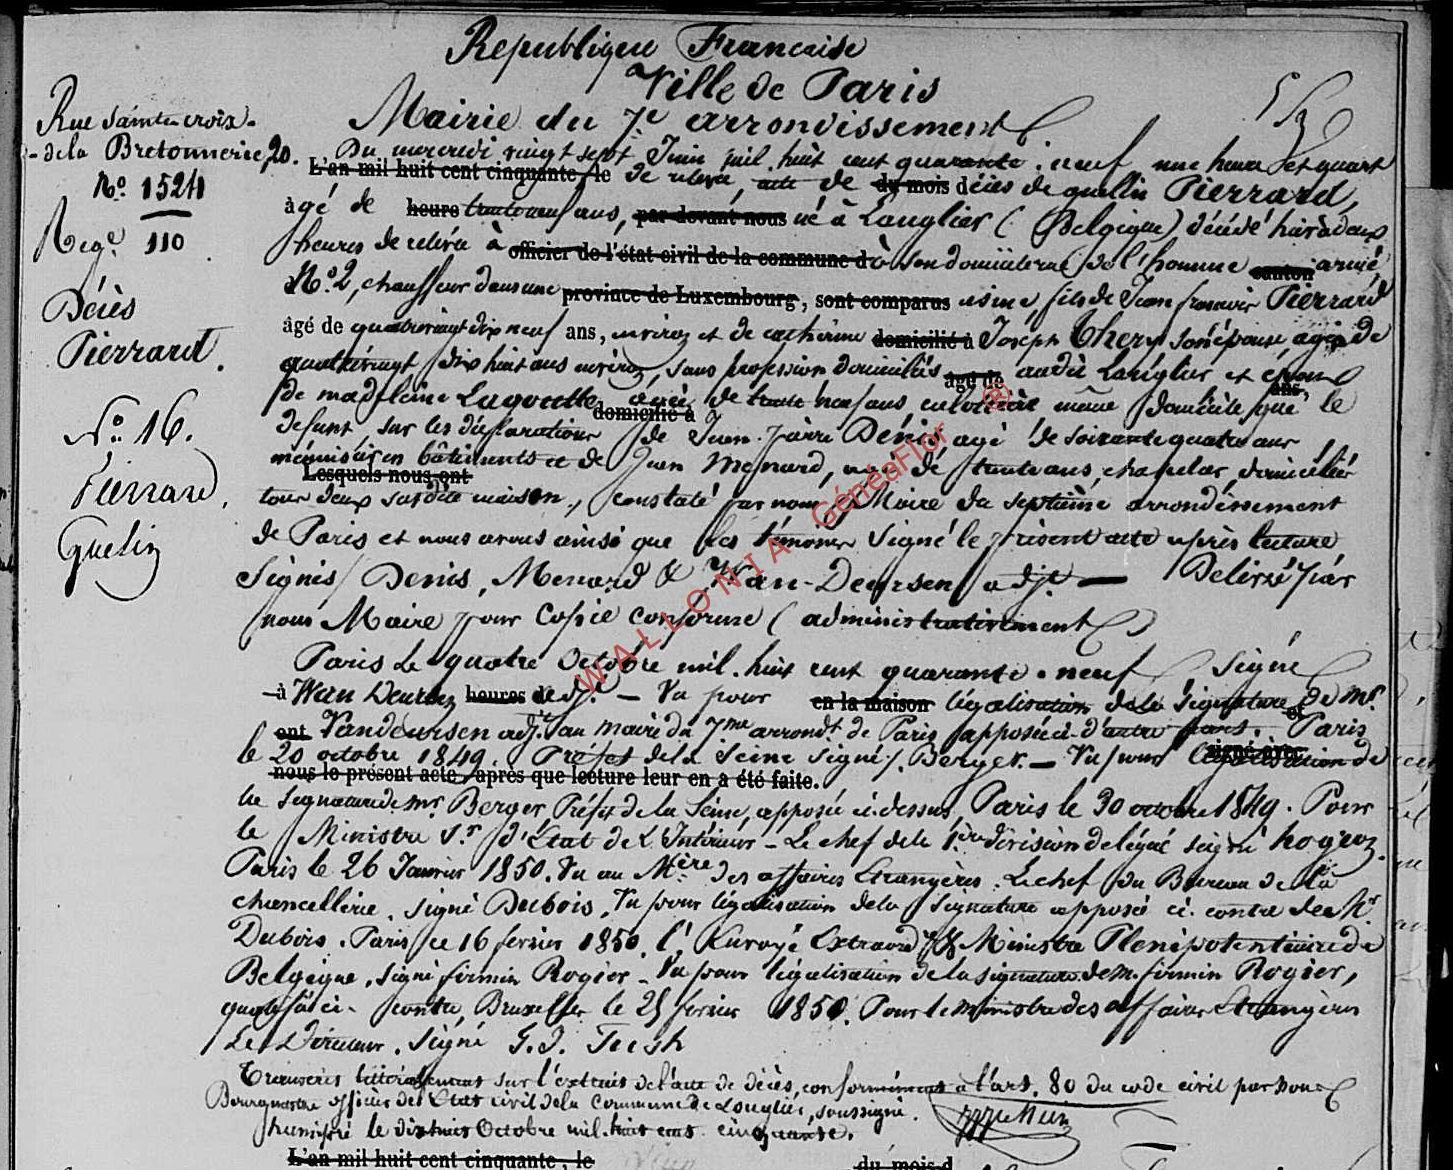 Republique Francaise
Ville de Paris
Mairie du 7e arrondissement
Rue Sainte croix
de la Bretonnerie, 20.
No. 1524
Regre 110
Décès
Pierrard.
No. 16.
Pierrard,
Quelin
Du mercredi vingt sept Juin mil huit cent quarante neuf une heure et quart
L'an mil huit cent cinquante, le de relevé, acte de du mois décès de quelin Pierrard,
âgé de heure trente neuf ans, par devant nous né à Longlier (Belgique) décédé hier à deux
heures de relevée à officier de l'état civil de la commune d à son domicile rue de l'homme canton armé
No. 2, chauffeur dans une province de Luxembourg, sont comparus usine, fils de Jean francois Pierrard
âgé de quatrevingt dix neuf ans, environ et de catherine domicilié à Joseph Thery son épouse, agée de
quatrevingt dix huit ans environ, sans profession domiciliés âgé de audit Longlier et époux ans,
de madeleine Lagoutte domicilié à agée de trente neuf ans, même domicile que le
defunt sur les déclarations de Jean Pierre Dénis agé de soixante quatre ans
menuisier en bâtiments et de Jean Menard, agé de trente ans, chapelier, domiciliés
Lesquels nous ont
tous deux susdite maison, constaté par nous Maire du septième arrondissement
de Paris et nous avons ainsi que les témoins signé le présent acte après lecture
Signés/ Denis, Menard & Van-Deursen adjt. — Delivré par
nous Maire pour Copie conforme (administrativement)
Paris Le quatre Octobre mil huit cent quarante neuf Signé
à Wan Deursen heures de adjt. — Vu pour en la maison légalisation de la Signature et de mr.
ont Vandeursen adjt. au maire du 7me arrondt. de Paris apposée ci-d'autre part. Paris
le 20 octobre 1849. Préfet de la Seine signé/. Berger. — Vu pour signé avec légalisation de
nous le présent acte, après que lecture leur en a été faite.
la signature de mr. Berger, Préfet de la Seine, apposée ci-dessus, Paris le 30 octobre 1849. Pour
le Ministre Sr. d'Etat de L'Intérieur - Le chef de la 1ère division délégué signé
Paris le 26 Janvier 1850. Vu au Mère des affaires Etrangères. Le chef du Bureau de la
chancellerie, signé Dubois, Vu pour légalisation de la signature apposée ci contre de Mr
Dubois. Paris ce 16 fevrier 1850. l' Envoyé Extraord. & Ministre Plenipotentiaire de
Belgique, signé firmin Rogier - Vu pour légalisation de la signature de m. firmin Rogier,
qualifié ci-contre, Bruxelles le 25 fevrier 1850. Pour le ministre des affaires Etrangères
Le Directeur. Signé
Transcris littéralement sur l'extrait de l'acte de décès, conformément à l'art. 80 du code civil par nous
Bourgmestre officier de l'Etat civil de la Commune de Longlier, soussigné.
le dix huit Octobre mil huit cent cinquante.
L'an mil huit cent cinquante, le du mois d
WALLONIA GénéaFlor ®